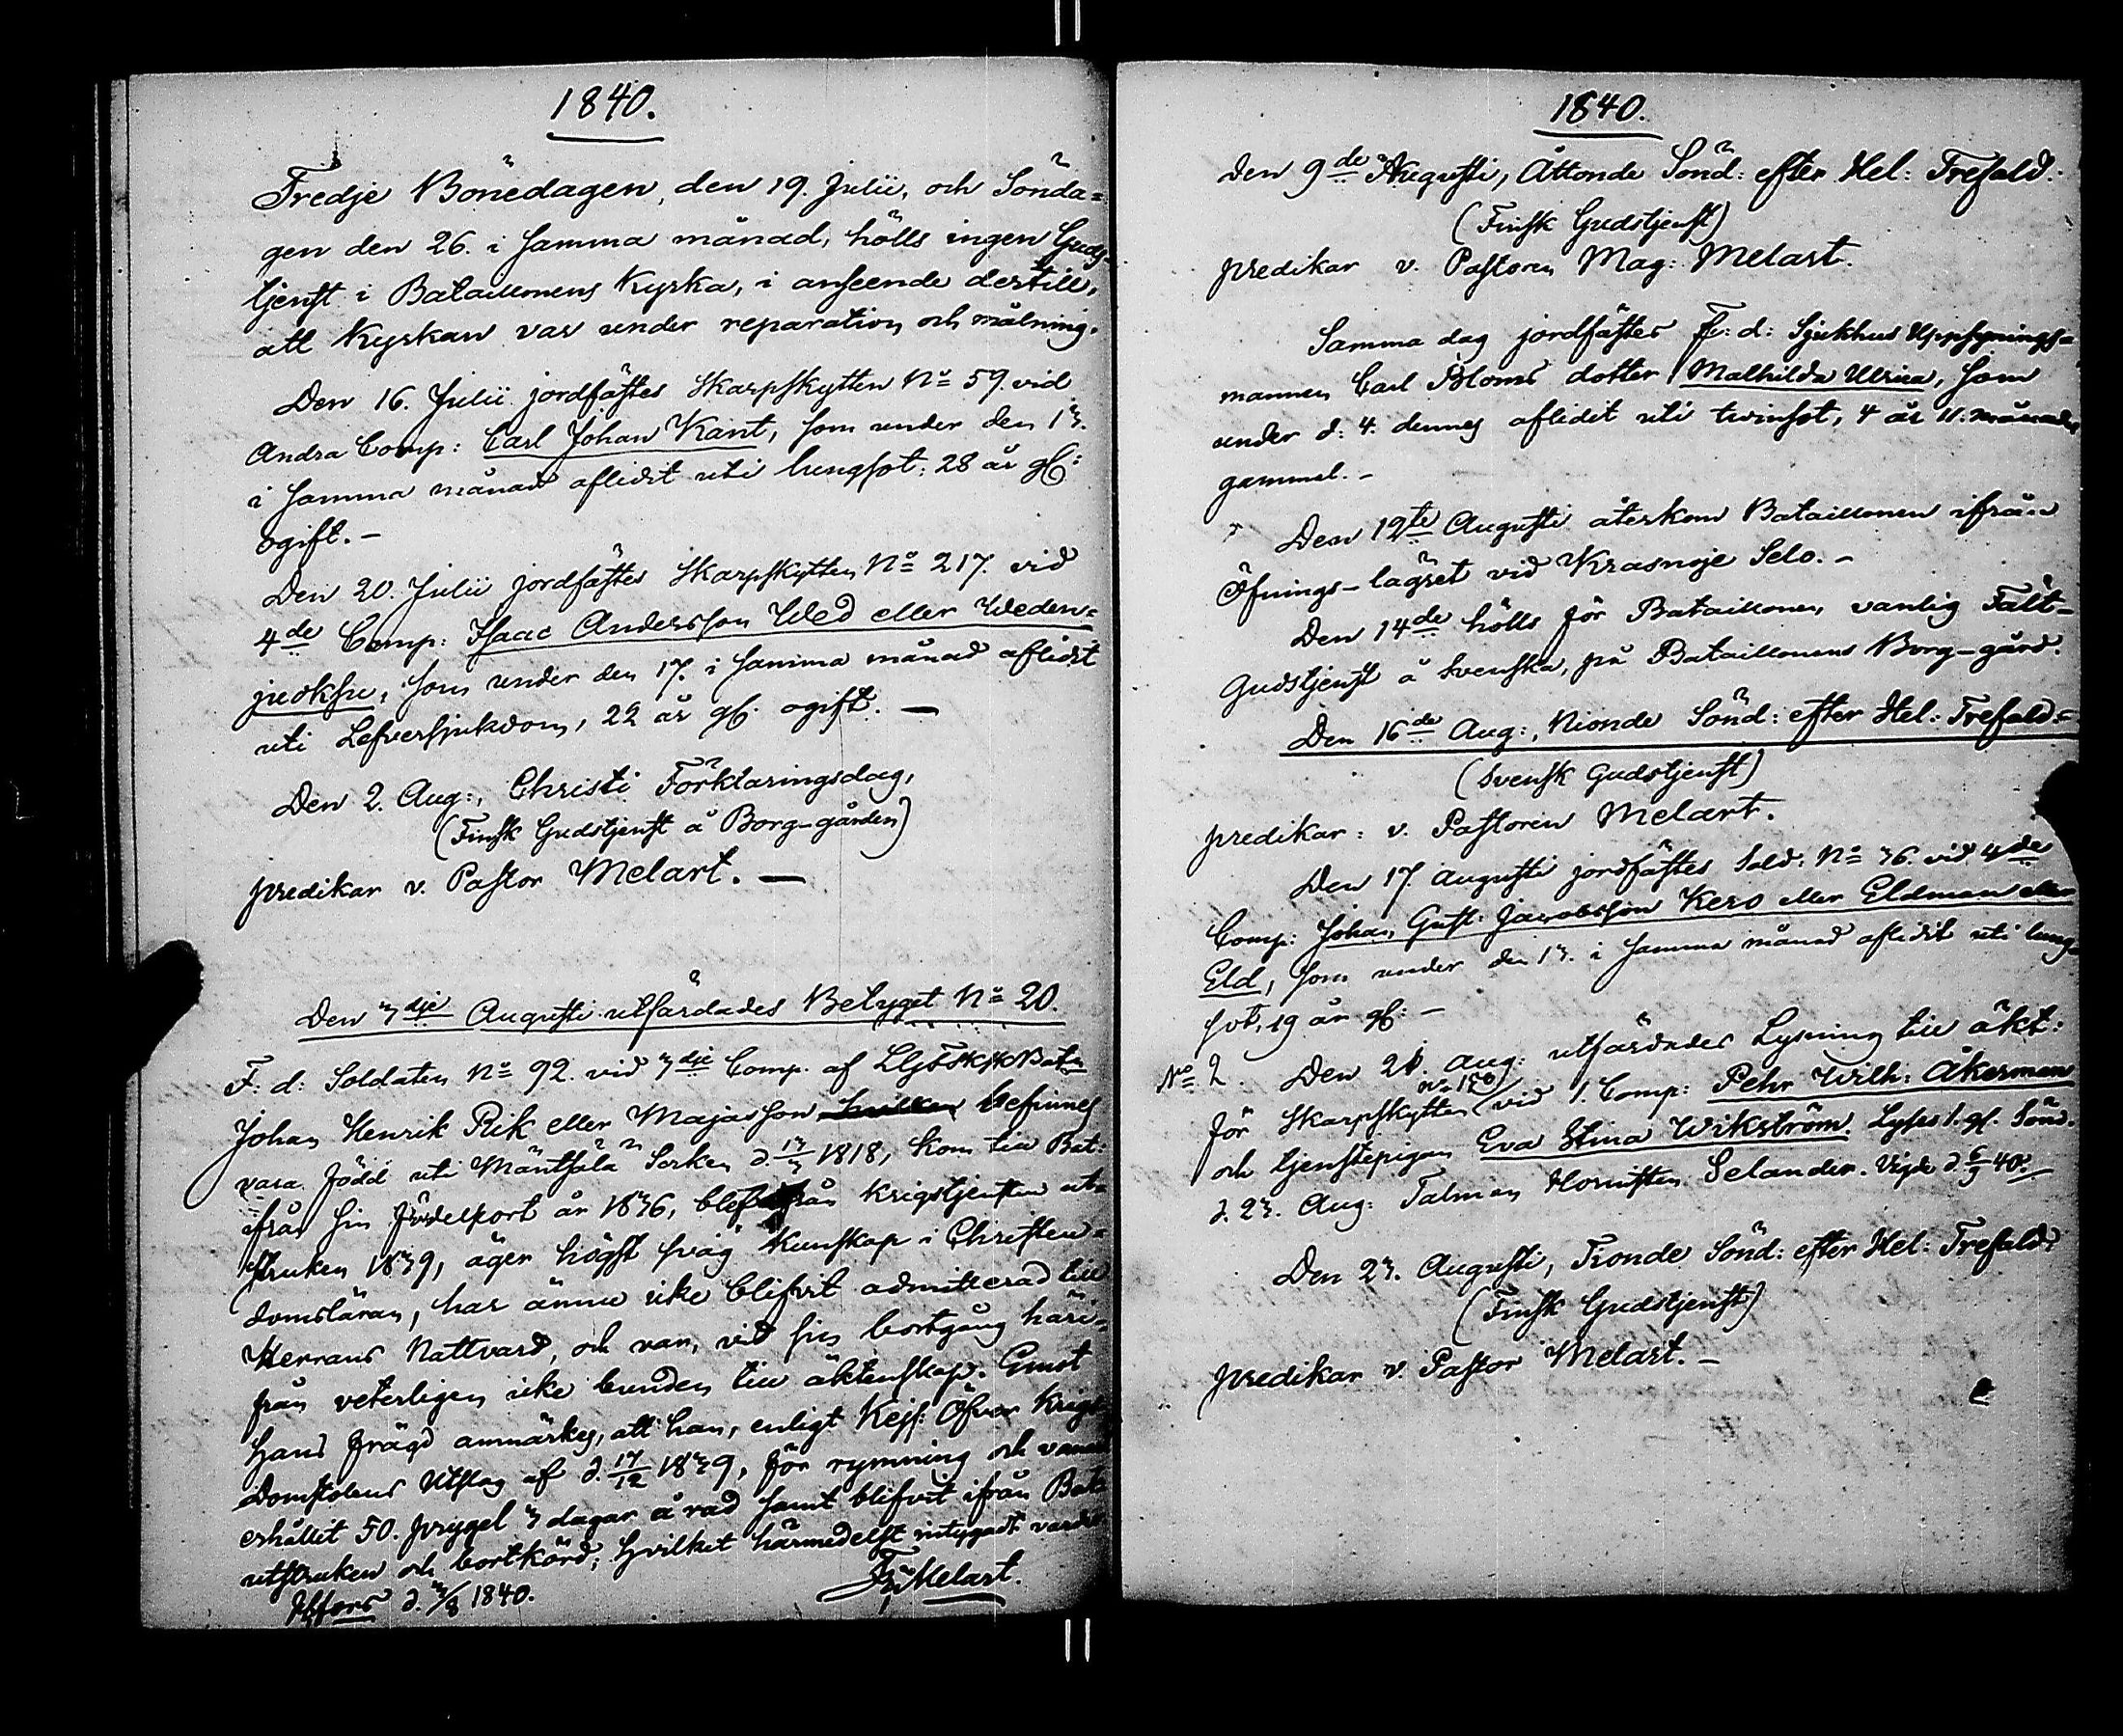 1840.
Tredje Bönedagen, den 19. Julii, och Sönda=
gen den 26. i samma månad, hölls ingen Guds-
tjenst i Bataillonens Kyrka, i anseende dertill,
att Kyrkan var under reparation och målning.
Den 16. Julii jordfästes Skarpskytten No 59 vid
Andra Comp: Carl Johan Kant, som under den 13.
i samma månad aflidit uti lungsot; 28 år gl:
ogift. -
Den 20. Julii jordfästes Skarpskytten No 217. vid
4de Comp: Isaac Andersson Wed eller Weden=
juoksu, som under den 17. i samma månad aflidit
uti Lefversjukdom, 22 år gl. ogift. —
Den 2. Aug:, Christi Förklaringsdag,
(Finsk Gudstjenst å Borg-gården)
predikar v. Pastor Melart. —
Den 3dje Augusti utfärdades Betyget No 20.
F: d: Soldaten No 92. vid 3dje Comp. af Bat:
Johan Henrik Rik eller Majasson befinnes
vara född uti Mäntsälä Socken d. 13/3 1818, kom till Bat:
ifrån sin födelsort år 1836, blef från krigstjensten ut-
struken 1839, äger högst svag kunskap i Christen=
domsläran, har ännu icke blifvit admitterad till
Herrans Nattvard, och var, vid sin bortgång häri-
från veterligen icke bunden till äktenskap. Emot
hans frägd anmärkes, att han, enligt Kejs: Öfver Krigs
Domstolens Utslag af d. 17/12 1839, för rymning och
erhållit 50. prygel 3 dagar å rad samt blifvit ifrån Bat:
utstruken och bortkörd; hvilket härmedelst intygadt varder
Hfors d. 3/8 1840. Fr: Melart.
1840.
Den 9de Augusti, Åttonde Sönd: efter Hel: Trefald:
(Finsk Gudstjenst)
predikar v. Pastoren Mag: Melart.
Samma dag jordfästes F: d: Sjukhus Uppsynings=
mannen Carl Bloms dotter Mathilda Ulrica, som
under d: 4. dennes aflidit uti tvinsot, 4 år 11. månader
gammal. -
Den 12te Augusti återkom Bataillonen ifrån
Öfnings-lägret vid Krasnoje Selo. -
Den 14de hölls för Bataillonen, vanlig Fält-
Gudstjenst å svenska, på Bataillonens Borg-gård.
Den 16de Aug:, Nionde Sönd: efter Hel: Trefald:
(Svensk Gudstjenst)
predikar: v. Pastoren Melart.
Den 17. augusti jordfästes Sold: No 36. vid 4de
Comp: Johan Gust: Jacobsson Kero eller Eldman eller
Eld, som under den 13. i samma månad aflidit uti lung-
sot, 19 år gl: -
No 2. Den 21. Aug: utfärdades Lysning till äkt:
för Skarpskytten No 130 vid 1. Comp: Pehr Wilh: Åkerman
och tjenstepigan Eva Stina Wikström. Lyses 1. g. Sönd.
d. 23. Aug: Talman Hornisten Selander. Vigde d. 6/9 40.
Den 23. Augusti, Tionde Sönd: efter Hel: Trefald:
(Finsk Gudstjenst)
predikar v. Pastor Melart. -